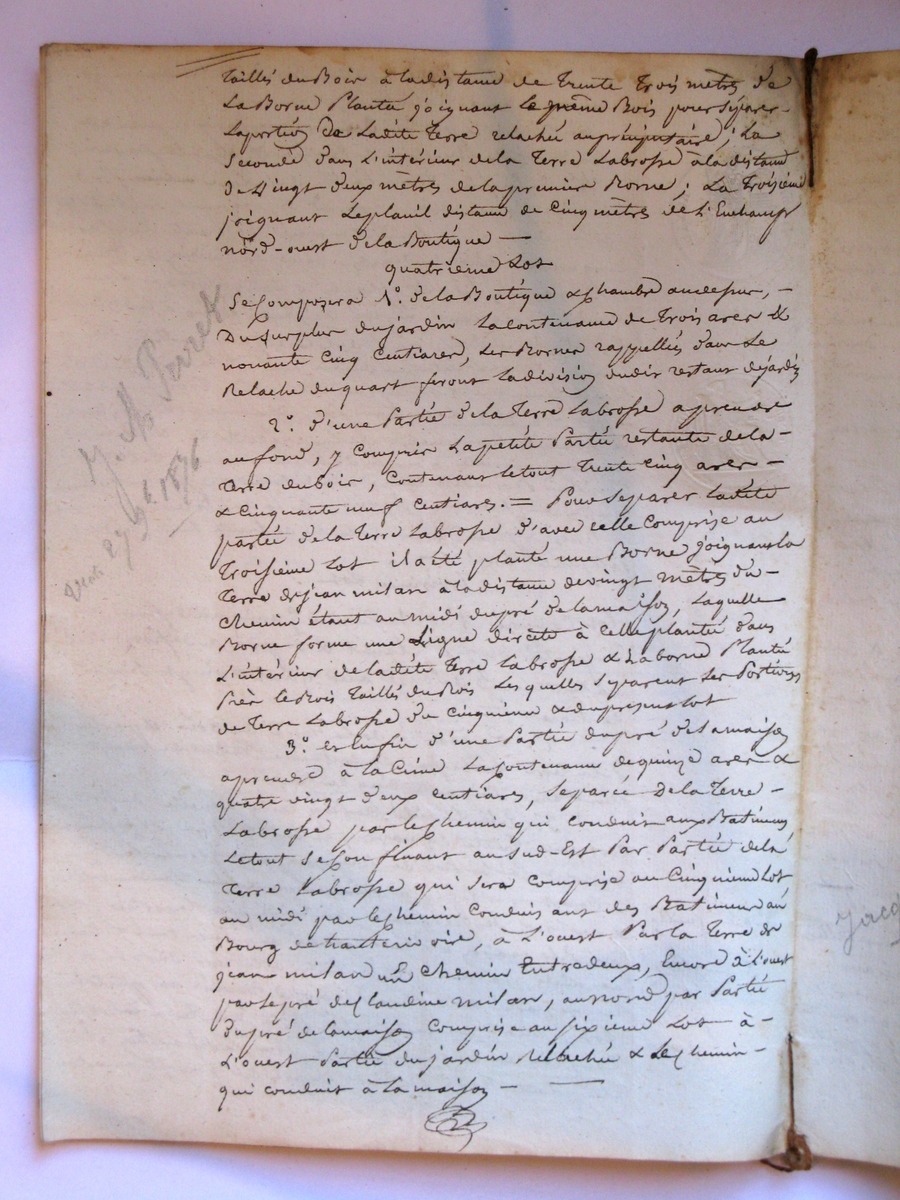 Taillé du Bois à la distance de Trente Trois mètres de
La Borne Plantée joignant le même Bois pour séparer
La portion De Ladite Terre relachée au préciputaire; La
Seconde dans L'intérieur de la Terre Labrosse à la distance
De Vingt deux mètres de la premiere Borne; La Troisième
joignant Le distance de Cinq mètres de L'
nord-ouest de la Boutique —
quatrieme Lot
Se Composera 1°. de la Boutique & Chambre audessus, —
Du Surplus du jardin La Contenance de Trois ares &
nonante Cinq Centiares, Les Bornes rappellés dans Le
Relache du quart feront La division dudit restant de jardin
2°. d'une Partie de la Terre Labrosse a prendre
au fond, y Compris La petite Partie restante de la —
Terre du Bois, Contenant Le tout Trente Cinq ares —
& Cinquante neuf Centiares. = Pour Séparer Ladite
partie de la Terre Labrosse d'avec celle Comprise au
Troisième Lot il a été planté une Borne joignant la
Terre de jean milan à la distance de vingt mètres du —
Chemin étant au midi du pré de la maison, Laquelle
Borne forme une Ligne directe à celle plantée dans
L'intérieur de la dite Terre Labrosse & La borne Plantée
Près le Bois Taillé du Bois Lesquelles Separent Les Portions
de Terre Labrosse du Cinquième & du present Lot
3°. et Enfin d'une Partie du pré de la maison
a prendre à la Cime La Contenance de quinze ares &
quatre vingt deux centiares, Separée De la Terre —
Labrosse par le Chemin qui conduit aux Batimens
Le tout Se Confinant au Sud-Est Par Partie de la
Terre Labrosse qui sera comprise au Cinquième Lot
au midi par le Chemin Conduisant des Batimens au
Bourg de , à L'ouest Par la Terre de
jean milan un Chemin Entredeux, Encore à L'ouest
par le pré de Claudine milan, au nord par Partie
du pré de la maison Comprise au Sixième Lot — à —
L'ouest Partie du jardin Relachée & Le Chemin —
qui conduit à la maison —
J. M Perret
27 1836
Jacq